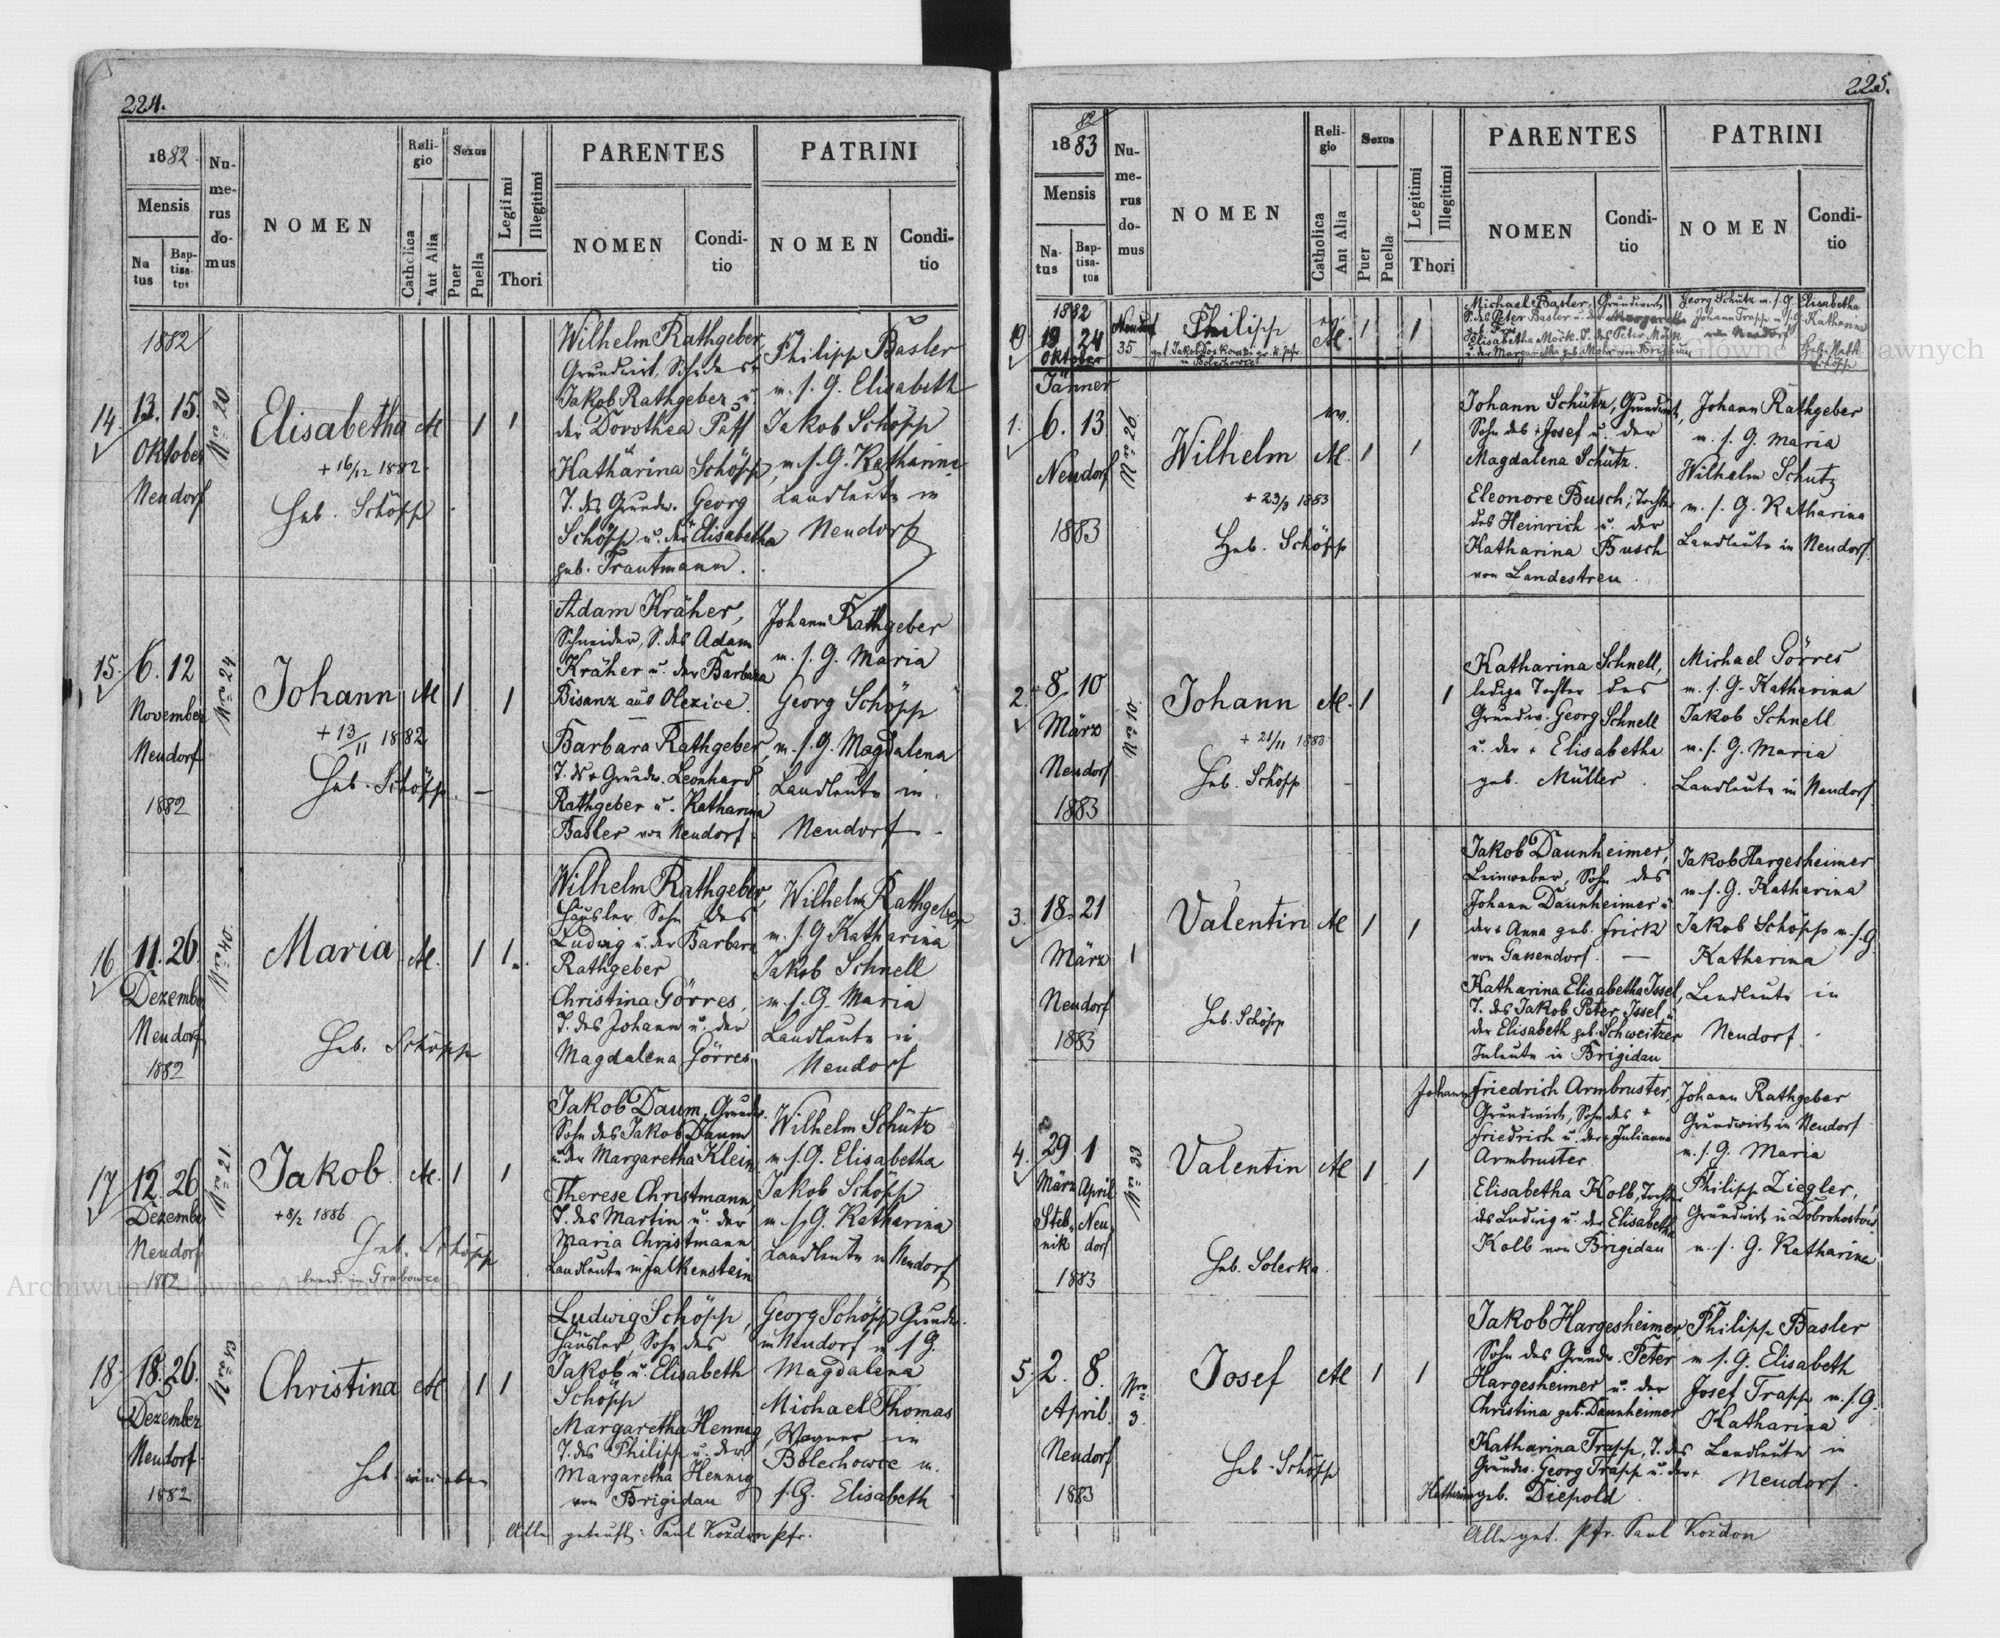 224.
1882.
Mensis
Na
tus
Bap-
tisa-
tus
Nu-
me-
rus
do-
mus
NOMEN
Reli-
gio
Catholica
Aut Alia
Sexus
Puer
Puella
Legitimi
Illegitimi
Thori
PARENTES
NOMEN
Condi-
tio
PATRINI
NOMEN
Condi-
tio
1882
14.
13. 15.
Oktober
Neudorf
Nro 20
Elisabetha
+ 16/12 1882.
Heb. Schöpp
1 1
Wilhelm Rathgeber,
Grundwirt, Sohn des +
Jakob Rathgeber u.
der Dorothea Paff
Katharina Schöpp,
T. des Grundw. Georg
Schöpp u. der Elisabetha
geb. Trautmann.
Philipp Basler
m. s. G. Elisabeth
Jakob Schöpp
m. s. G. Katharina
Landleute in
Neudorf
15.
6. 12
November
Neudorf
1882
Nro 24
Johann
+ 13/11 1882
Heb. Schöpp.
1 1
Adam Kräher,
Schneider, S. des Adam
Kräher u. der Barbara
Bisanz aus Olexice.
Barbara Rathgeber,
T. d. + Grundw. Leonhard
Rathgeber u. Katharina
Basler von Neudorf.
Johann Rathgeber
m. s. G. Maria
Georg Schöpp
m. s. G. Magdalena
Landleute in
Neudorf.
16
11. 26.
Dezember
Neudorf
1882
Nro 40.
Maria
Heb. Schöpp
1 1
Wilhelm Rathgeber,
Häusler, Sohn des
Ludwig u. der Barbara
Rathgeber
Christina Görres,
T. des Johann u. der
Magdalena Görres.
Wilhelm Rathgeber
m. s. G. Katharina
Jakob Schnell
m. s. G. Maria
Landleute in
Neudorf
17
12. 26
Dezember
Neudorf
1882
Nro 21.
Jakob
+ 8/2 1886
Heb. Schöpp
beerd. in Grabowce
1 1
Jakob Daum, Grundw.
Sohn des Jakob Daum
u. der Margaretha Klein
Therese Christmann,
T. des Martin u. der
Maria Christmann
Landleute in Falkenstein
Wilhelm Schütz
m. s. G. Elisabetha
Jakob Schöpp
m. s. G. Katharina
Landleute in Neudorf
18.
18. 26.
Dezember
Neudorf.
1882
Nro 13
Christina
Heb. wie oben
1 1
Ludwig Schöpp,
Häusler, Sohn des
Jakob u. Elisabeth
Schöpp
Margaretha Hennig
T. des Philipp u. der
Margaretha Hennig
von Brigidau
Georg Schöpp Grundw.
in Neudorf m. s. G.
Magdalena
Michael Thomas
, Wagner in
Bolechowce m.
s. G. Elisabeth
Alle getauft: Paul Kozdon pfr.
225.
82
1883
Mensis
Na-
tus
Bap-
tisa-
tus
Nu-
me-
rus
do-
mus
NOMEN
Reli-
gio
Catholica
Aut Alia
Sexus
Puer
Puella
Legitimi
Illegitimi
Thori
PARENTES
NOMEN
Condi-
tio
PATRINI
NOMEN
Condi-
tio
1882
19
19 24
Oktober
Neudorf
35
Philipp
1 1
Michael Basler, Grundwirt
S. des Peter Basler u. der Margaretha
Elisabetha Möck, T. des Peter Möck
u. der Margaretha geb. Mohr von Brigidau
Georg Schütz m. s. G. Elisabetha
Johann Trapp u. s. G. Katharina
von Neudorf
Heb. Kath.
Schöpp
Jänner
1.
6. 13
Neudorf
1883
Nro 26
Wilhelm
+ 23/3 1883
Heb. Schöpp
1 1
Johann Schütz, Grundwirt,
Sohn des + Josef u. der
Magdalena Schütz.
Eleonore Busch, Tochter
des Heinrich u. der
Katharina Busch
von Landestreu.
Johann Rathgeber
m. s. G. Maria
Wilhelm Schütz
m. s. G. Katharina
Landleute in Neudorf.
2.
8. 10
März
Neudorf
1883
Nro 10.
Johann
+ 21/11 1883
Heb. Schöpp
1 1
Katharina Schnell,
ledige Tochter des
Grundw. Georg Schnell
u. der + Elisabetha
geb. Müller.
Michael Görres
m. s. G. Katharina
Jakob Schnell
m. s. G. Maria
Landleute in Neudorf.
3.
18. 21
März
Neudorf
1883
1
Valentin
Heb. Schöpp
1 1
Jakob Daunheimer,
Leinweber, Sohn des
Johann Daunheimer u
der + Anna geb. Frick
von Gassendorf.
Katharina Elisabetha Issel,
T. des Jakob Peter Issel u
der Elisabeth geb. Schweitzer
Inleute in Brigidau
Jakob Hargesheimer
m. s. G. Katharina
Jakob Schöpp m. s. G.
Katharina
Landleute in
Neudorf.
4.
29 1
März April
Steb- Neu-
nik dorf
1883
Nro 33
Valentin
Heb. Solecka
1 1
Johann Friedrich Armbruster,
Grundwirt, Sohn des +
Friedrich u. der + Julianna
Armbruster
Elisabetha Kolb, Tochter
des Ludwig u. der Elisabetha
Kolb von Brigidau
Johann Rathgeber
Grundwirt in Neudorf
m. s. G. Maria
Philipp Ziegler,
Grundwirt in Dobrohostów
m. s. G. Katharina
5.
2. 8.
April.
Neudorf
1883
Nro
3.
Josef
Heb. Schöpp
1 1
Jakob Hargesheimer
Sohn des Grundw. Peter
Hargesheimer u. der
Christina geb. Daunheimer
Katharina Trapp, T. des
Grundw. Georg Trapp u. der +
Katharina geb. Diepold
Philipp Basler
m s. G. Elisabeth
Josef Trapp m. s. G.
Katharina
Landleute in
Neudorf.
Alle get. Pfr. Paul Kozdon
Archiwum Główne Akt Dawnych
Główne Dawnych